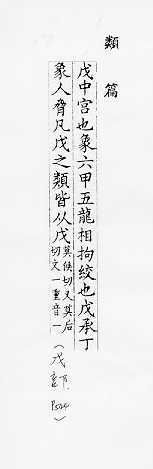 類篇
戊中宮也象六甲五龍相拘絞也戊承丁
象人脅凡戊之類皆从戊莫候切又莫后
切文一重音一
（戊部 ）